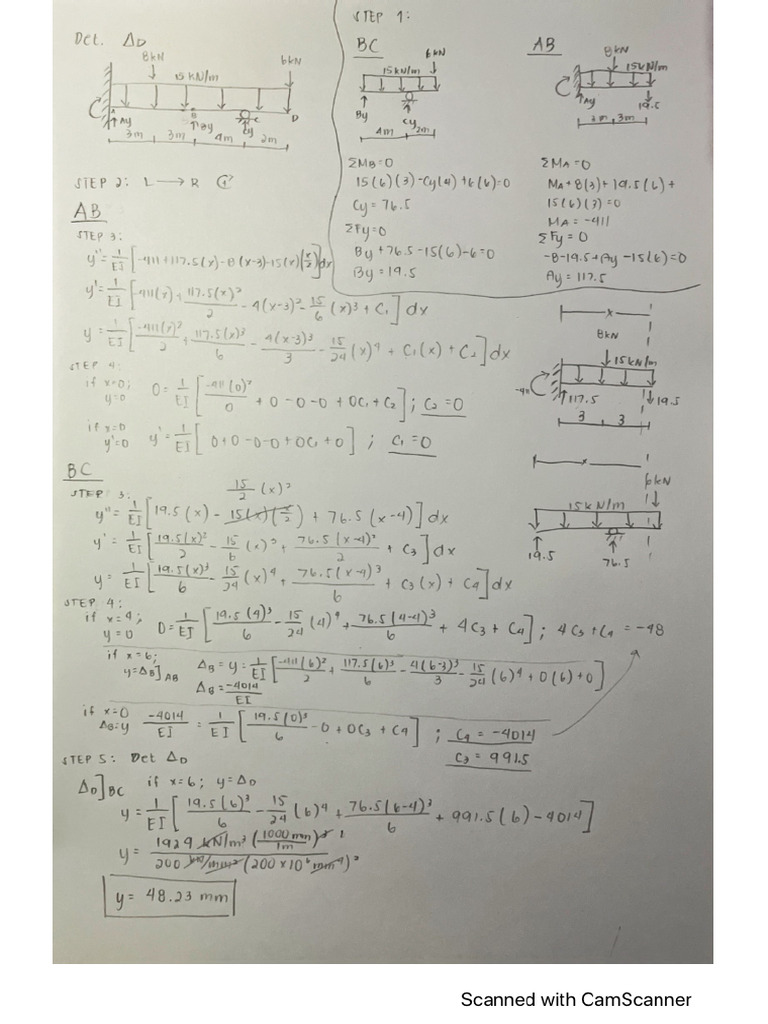 Det. Δ_D
8kN
15 kN/m
6kN
Ay
By
Cy
C
D
3m 3m 4m 2m
STEP 1:
BC
6kN
15kN/m
By
Cy
4m 2m
ΣM_B=0
15(6)(3)-Cy(4)+6(6)=0
Cy = 76.5
ΣFy=0
By+76.5-15(6)-6=0
By=19.5
AB
8kN
15kN/m
Ay
19.5
3m 3m
ΣM_A=0
M_A+8(3)+19.5(6)+
15(6)(3)=0
M_A = -411
ΣFy = 0
-8-19.5+Ay-15(6)=0
Ay = 117.5
STEP 2: L → R
AB
STEP 3:
y''= 1/EI [-411+117.5(x)-8(x-3)-15(x)(x/2)]dx
y'= 1/EI [-411(x)+117.5(x)²/2 - 4(x-3)² - 15/6 (x)³ + C₁] dx
y = 1/EI [-411(x)²/2 + 117.5(x)³/6 - 4(x-3)³/3 - 15/24 (x)⁴ + C₁(x) + C₂] dx
STEP 4:
if x=0;
y=0
0= 1/EI [-411(0)²/0 + 0 - 0 - 0 + 0C₁ + C₂]; C₂=0
if x=0
y'=0
y'= 1/EI [0+0-0-0+0C₁+0] ; C₁=0
x
8kN
15kN/m
-411
117.5
19.5
3 3
x
6kN
15kN/m
19.5
76.5
BC
STEP 3:
15/2 (x)²
y''= 1/EI [19.5(x) - 15(x)(x/2) + 76.5(x-4)] dx
y'= 1/EI [19.5(x)²/2 - 15/6 (x)³ + 76.5(x-4)²/2 + C₃] dx
y= 1/EI [19.5(x)³/6 - 15/24 (x)⁴ + 76.5(x-4)³/6 + C₃(x) + C₄] dx
STEP 4:
if x=4;
y=0
0= 1/EI [19.5(4)³/6 - 15/24 (4)⁴ + 76.5(4-4)³/6 + 4C₃ + C₄] ; 4C₃+C₄ = -48
if x=6;
y=Δ_B]AB
Δ_B = y = 1/EI [-411(6)²/2 + 117.5(6)³/6 - 4(6-3)³/3 - 15/24 (6)⁴ + 0(6)+0]
Δ_B = -4014/EI
if x=0
Δ_B=y
-4014/EI = 1/EI [19.5(0)³/6 - 0 + 0C₃ + C₄] ; C₄ = -4014
C₃ = 991.5
STEP 5: Det Δ_D
Δ_D]BC if x=6; y=Δ_D
y= 1/EI [19.5(6)³/6 - 15/24 (6)⁴ + 76.5(6-4)³/6 + 991.5(6) - 4014]
y= 1929 kN/m³ (1000mm/1m)³ / 200 kN/mm² (200×10⁶ mm⁴)
y= 48.23 mm
Scanned with CamScanner